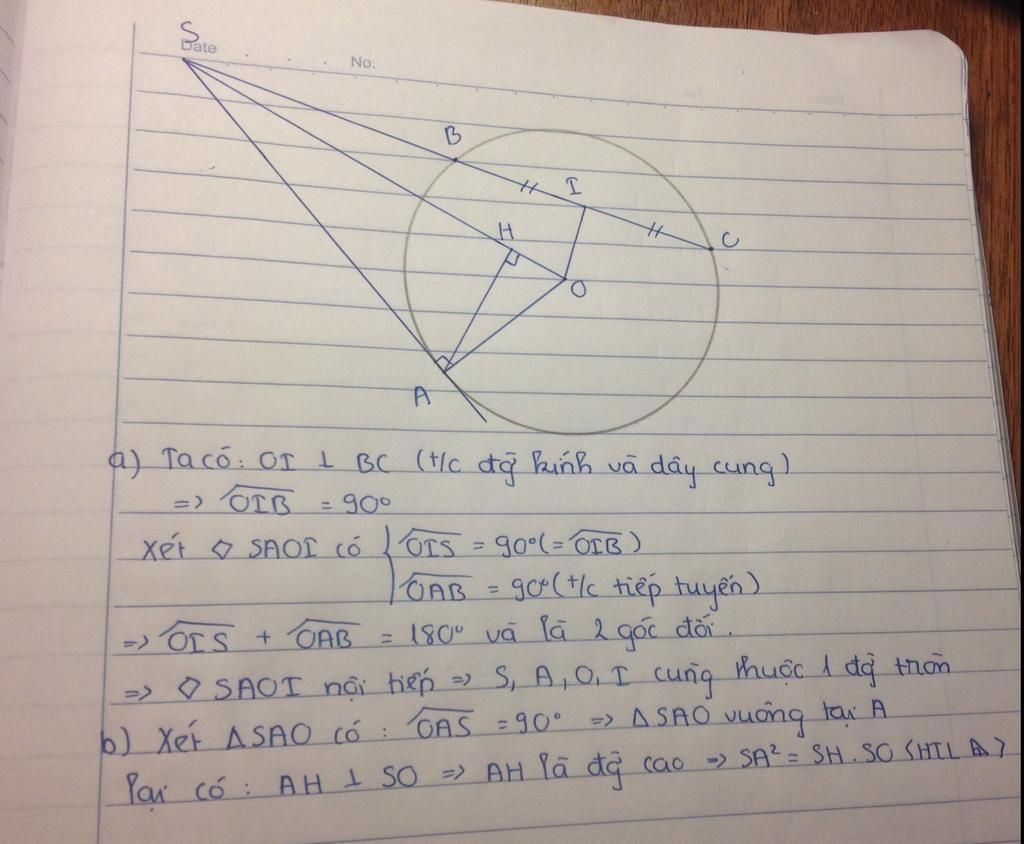 S
Date
No.
B
I
C
H
O
A
a) Ta có: OI ⊥ BC (t/c đg̀ kính và dây cung)
=> OIB = 90°
Xét ◇ SAOI có { OIS = 90° (= OIB)
OAB = 90° (t/c tiếp tuyến)
=> OIS + OAB = 180° và là 2 góc đối.
=> ◇ SAOI nội tiếp => S, A, O, I cùng thuộc 1 đg̀ tròn
b) Xét ΔSAO có: OAS = 90° => ΔSAO vuông tại A
Lại có: AH ⊥ SO => AH là đg̀ cao => SA² = SH.SO (HTL Δ)